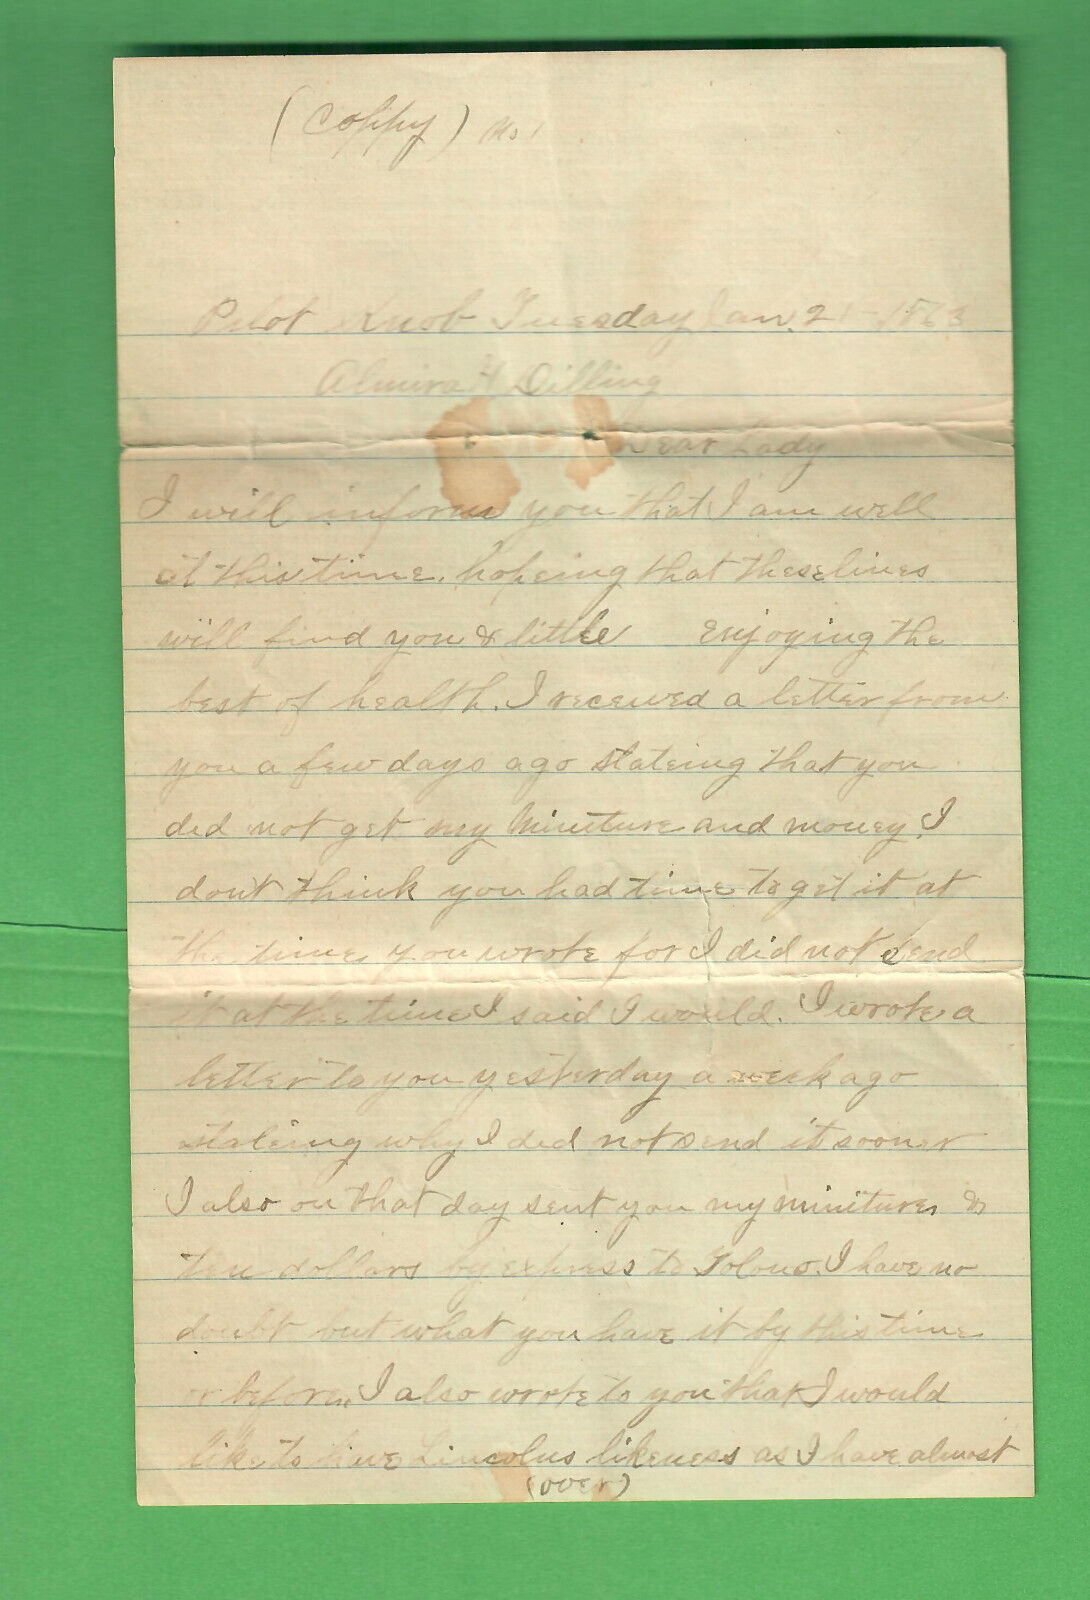 (Coppy) No 1
Pilot Knob Tuesday Jan. 21 - 1863
Almira H Dilling
Dear Lady
I will inform you that I am well
at this time, hopeing that these lines
will find you & little enjoying the
best of health. I received a letter from
you a few days ago stateing that you
did not get my Miniture and money. I
don't think you had time to get it at
the time you wrote for I did not send
it at the time I said I would. I wrote a
letter to you yesterday a week ago
stateing why I did not send it sooner
I also on that day sent you my miniture &
ten dollars by express to Tolono. I have no
doubt but what you have it by this time
or before, I also wrote to you that I would
like to have Lincolns likeness as I have almost
(over)